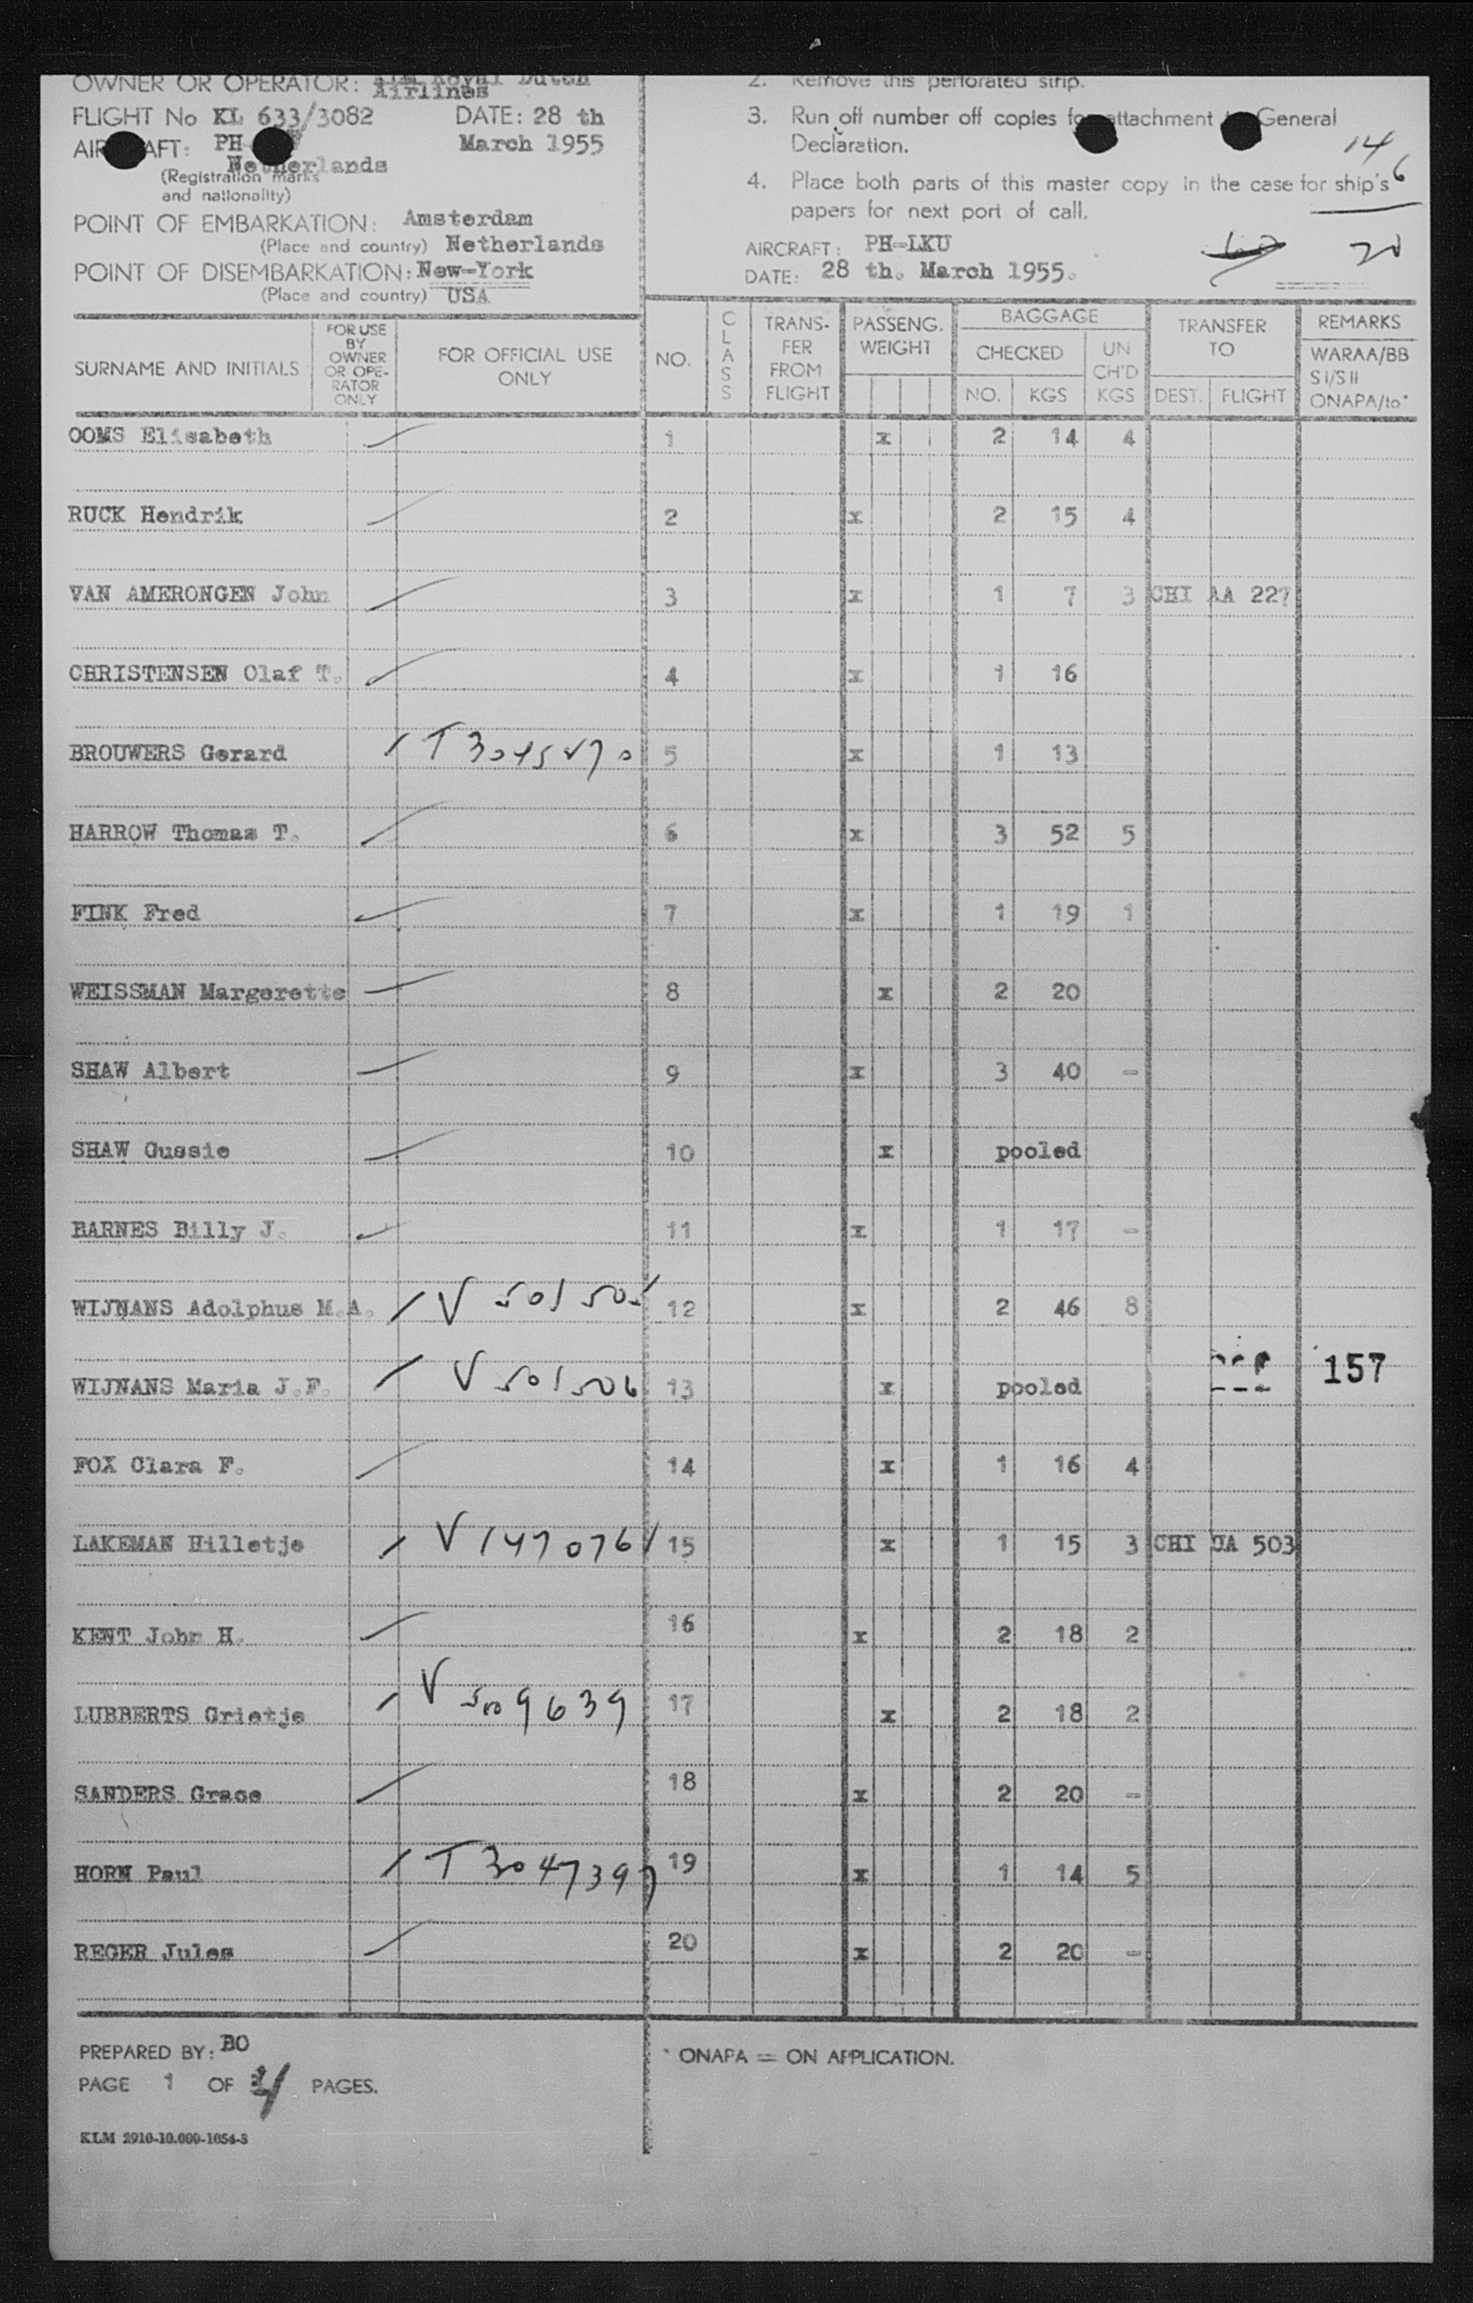 OWNER OR OPERATOR: KLM Royal Dutch
Airlines
FLIGHT No KL 633/3082 DATE: 28 th
March 1955
AIRCRAFT: PH
Netherlands
(Registration marks
and nationality)
POINT OF EMBARKATION: Amsterdam
(Place and country) Netherlands
POINT OF DISEMBARKATION: New-York
(Place and country) USA
2. Remove this perforated strip.
3. Run off number off copies for attachment to General
Declaration.
4. Place both parts of this master copy in the case for ship's
papers for next port of call.
14
6
20
AIRCRAFT: PH-LKU
DATE: 28 th. March 1955.
SURNAME AND INITIALS FOR USE BY OWNER OR OPE-RATOR ONLY FOR OFFICIAL USE ONLY NO. CLASS TRANS-FER FROM FLIGHT PASSENG. WEIGHT BAGGAGE CHECKED NO. KGS UN CH'D KGS TRANSFER TO DEST. FLIGHT REMARKS WARAA/BB SI/SII ONAPA/to*
OOMS Elisabeth 1 x 2 14 4
RUCK Hendrik 2 x 2 15 4
VAN AMERONGEN John 3 x 1 7 3 CHI AA 227
CHRISTENSEN Olaf T. 4 x 1 16
BROUWERS Gerard 5 x 1 13
HARROW Thomas T. 6 x 3 52 5
FINK Fred 7 x 1 19 1
WEISSMAN Margerette 8 x 2 20
SHAW Albert 9 x 3 40 -
SHAW Gussie 10 x pooled
BARNES Billy J. 11 x 1 17 -
WIJNANS Adolphus M.A. V 501505 12 x 2 46 8
WIJNANS Maria J.F. V 501506 13 x pooled 157
FOX Clara F. 14 x 1 16 4
LAKEMAN Hilletje V 1470761 15 x 1 15 3 CHI UA 503
KENT John H. 16 x 2 18 2
LUBBERTS Grietje V 509639 17 x 2 18 2
SANDERS Grace 18 x 2 20 -
HORN Paul T 3047397 19 x 1 14 5
REGER Jules 20 x 2 20 -
PREPARED BY: BO
PAGE 1 OF 4 PAGES.
* ONAPA = ON APPLICATION.
KLM 2910-10.000-1054-S